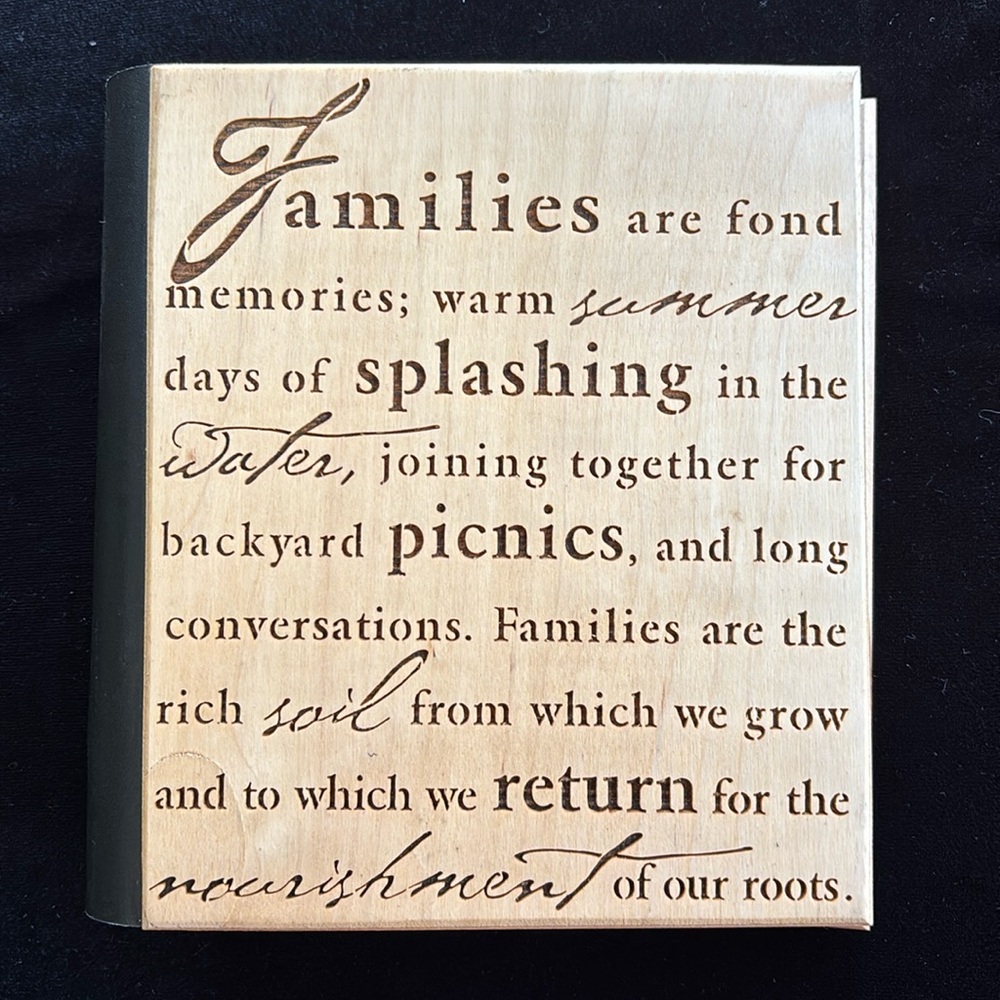 Families are fond
memories; warm summer
days of splashing in the
water, joining together for
backyard picnics, and long
conversations. Families are the
rich soil from which we grow
and to which we return for the
nourishment of our roots.